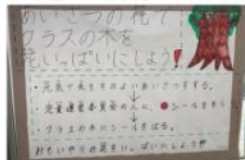 あいさつの花で
クラスの木を
花いっぱいにしよう!
・元気で気もちのよいあいさつをする。
・児童運営委員会の人に、●シールをもらう
・クラスの木にシールをはる。
おもいやりの花をい。ぱいにしょう